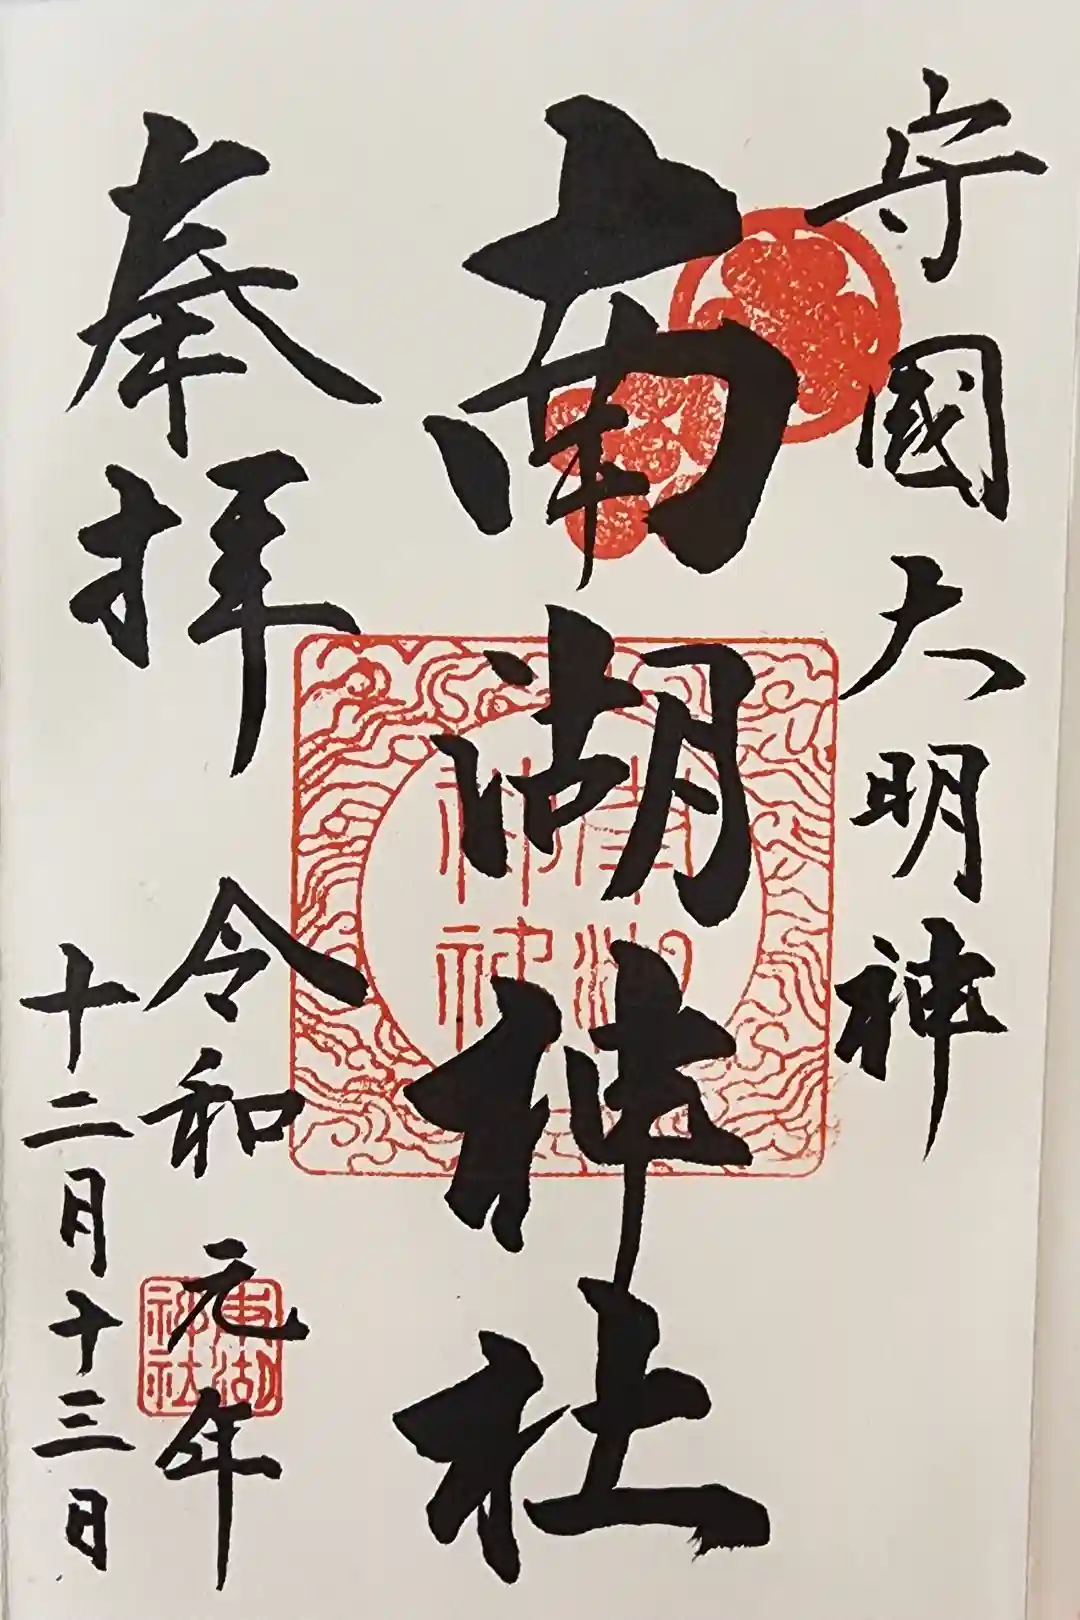 守國大明神
南湖神社
奉拝
令和元年
十二月十三日
南湖
神社